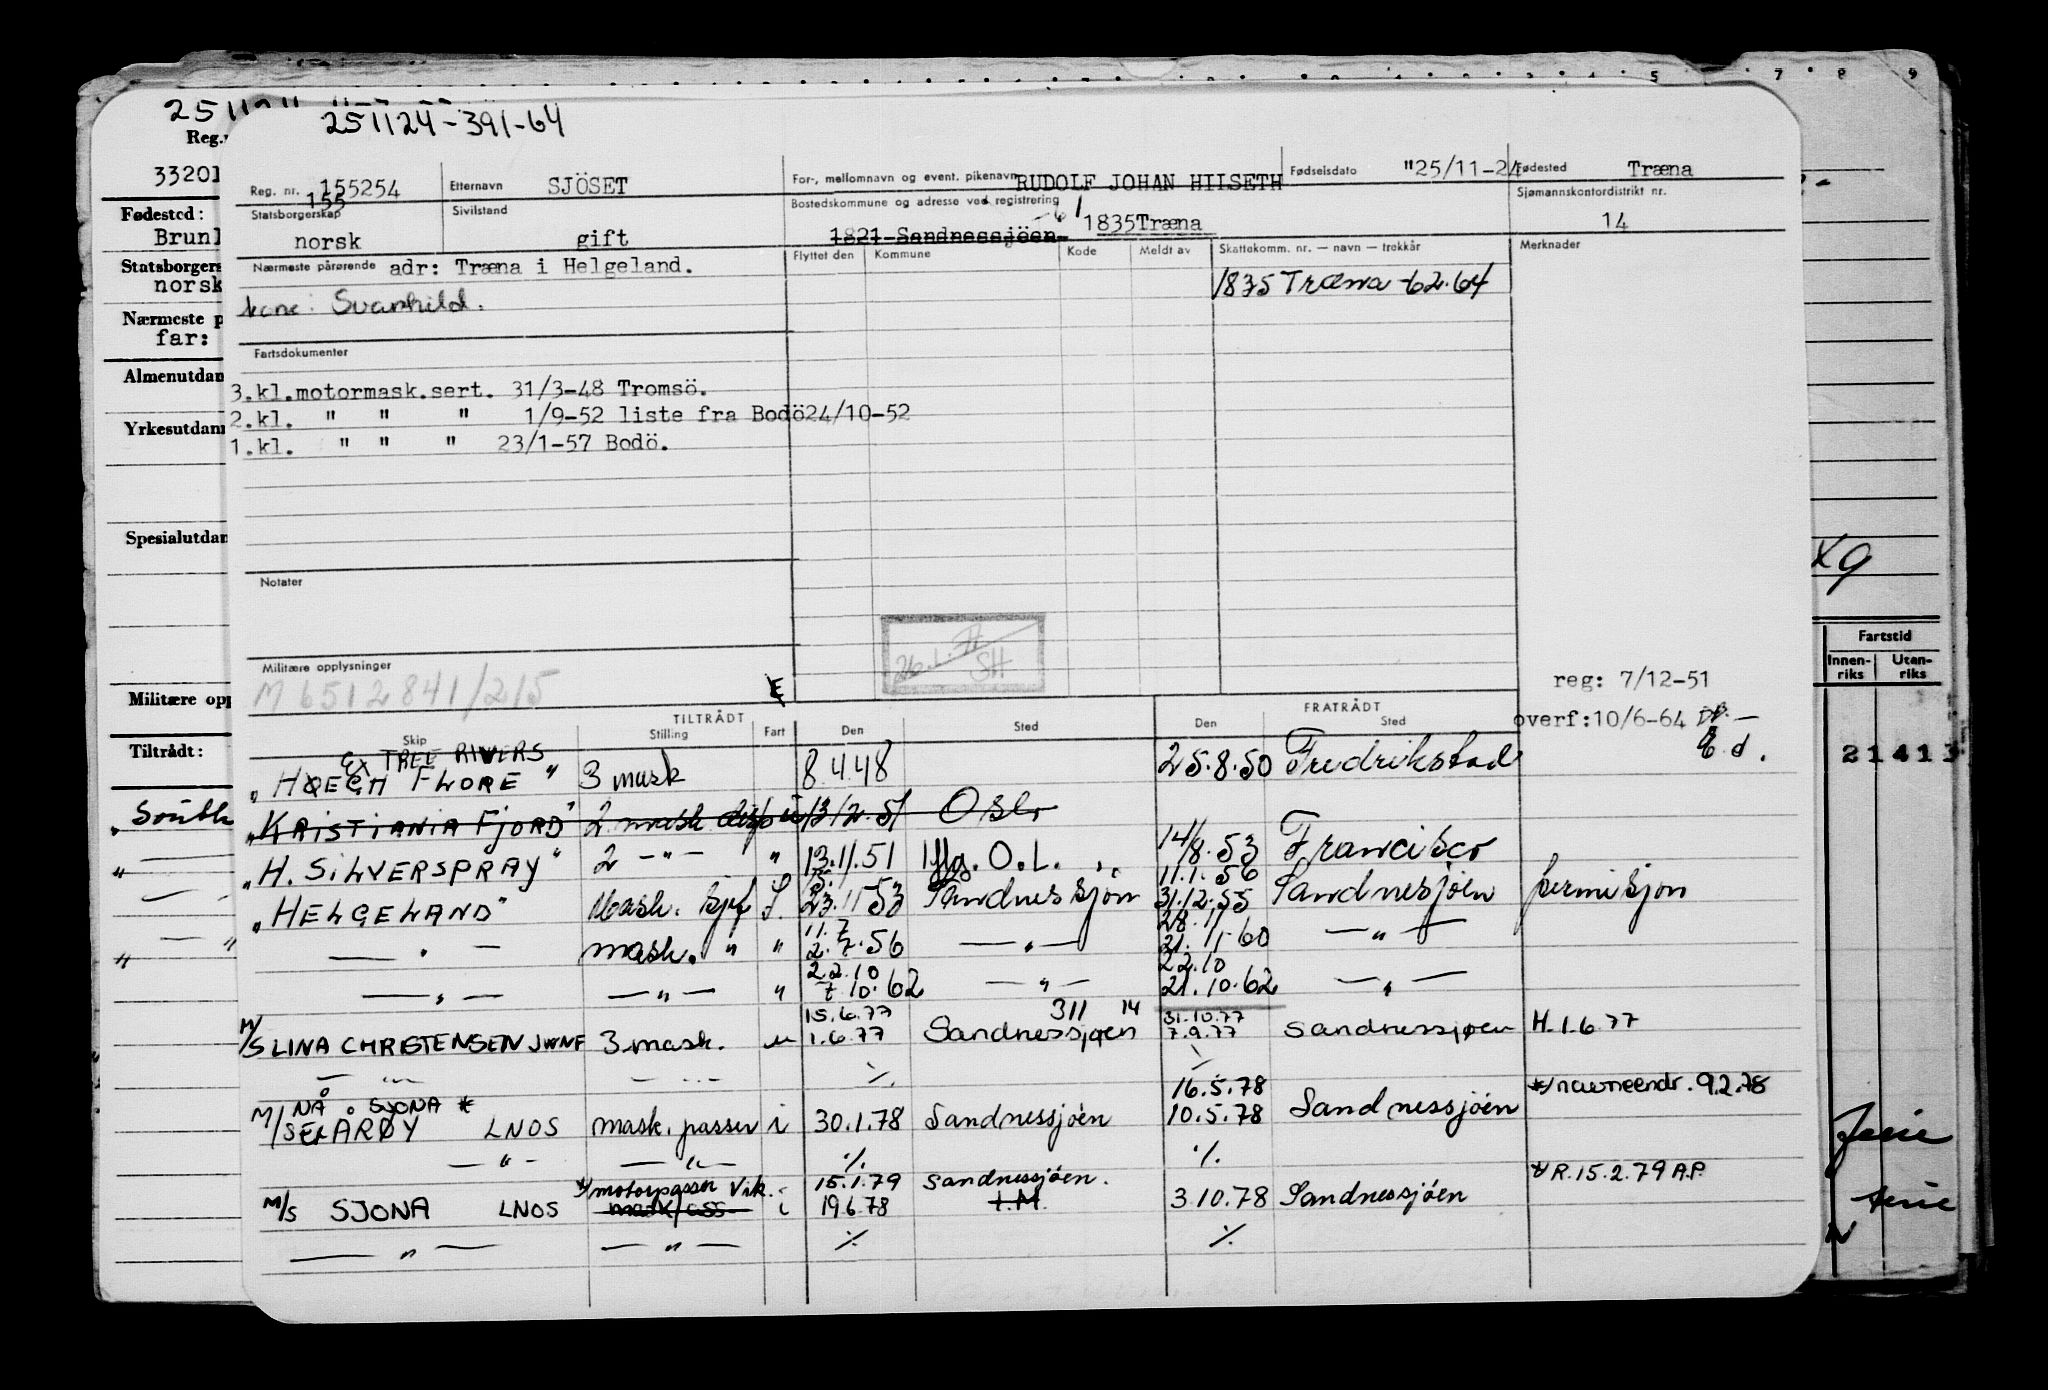 251124-391-64
Reg. nr. 155254 Etternavn SJÖSET For-, mellomnavn og event. pikenavn RUDOLF JOHAN HIISETH Fødselsdato "25/11-24 Fødested Træna
155
Statsborgerskap norsk Sivilstand gift Bostedskommune og adresse ved registrering 1821 Sandnessjöen 1835 Træna Sjømannskontordistrikt nr. 14
Nærmeste pårørende adr: Træna i Helgeland. Flyttet den Kommune Kode Meldt av Skattekomm. nr. — navn — trekkår Merknader
kone: Svanhild. 1835 Træna -62.64
Fartsdokumenter
3.kl.motormask.sert. 31/3-48 Tromsö.
2.kl. " " " 1/9-52 liste fra Bodö24/10-52
1.kl. " " " 23/1-57 Bodö.
Notater
SH
Militære opplysninger
M6512841/2/5
reg: 7/12-51
overf:10/6-64
TILTRÅDT FRATRÅDT
Skip Stilling Fart Den Sted Den Sted
Ex TREE RIVERS
"HØEGH FLORE" 3 mask 8.4.48 25.8.50 Fredrikstad
"KRISTIANIA FJORD" 2 mask 13/2.51 Oslo
"H. SILVERSPRAY" 2 —"— " 13.11.51 O.L. 14/8.53 Francisco
11.1.56
"HELGELAND" Mask. 23.11.53 Sandnessjøn 31.12.55 Sandnessjøen permisjon
11.7 28.11
— " — mask. " " 2.7.56 — " — 21.11.60 — " —
22.10 22.10
— " — — " — " 7.10.62 — " — 21.10.62 — " —
15.6.77 311 14 31.10.77
M/S LINA CHRISTENSEN JWNF 3.mask. u 1.6.77 Sandnessjøen 7.9.77 Sandnessjøen H.1.6.77
— " — — " — ./. ./.
NÅ SJONA * 16.5.78 */navneendr. 9.2.78
M/S EX ARØY LNOS mask.passer i 30.1.78 Sandnessjöen 10.5.78 Sandnessjöen
— " — — " — ./. ./.
*/motorpasser Vik. i 15.1.79 Sandnessjöen. */R.15.2.79 A.P.
M/S SJONA LNOS mask/ass i 19.6.78 I.M. 3.10.78 Sandnessjöen
— " — — " — ./. ./.
33201
Fødested:
Brunl
Statsborgers
norsk
Nærmeste p
far:
Almenutdan
Yrkesutdann
Spesialutdan
Militære opp
Tiltrådt:
South
Fartstid
Innen-riks Utan-riks
2141